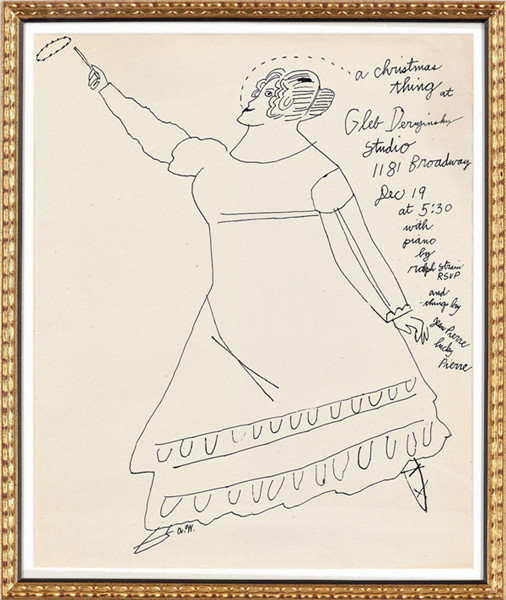 a christmas
thing at
Gleb Derujinsky
studio
1181 Broadway
Dec 19
at 5:30
with
piano
by
ralph Strain
RSVP
and
things by
Jean Pierre
lucky
Pierre
a.W.